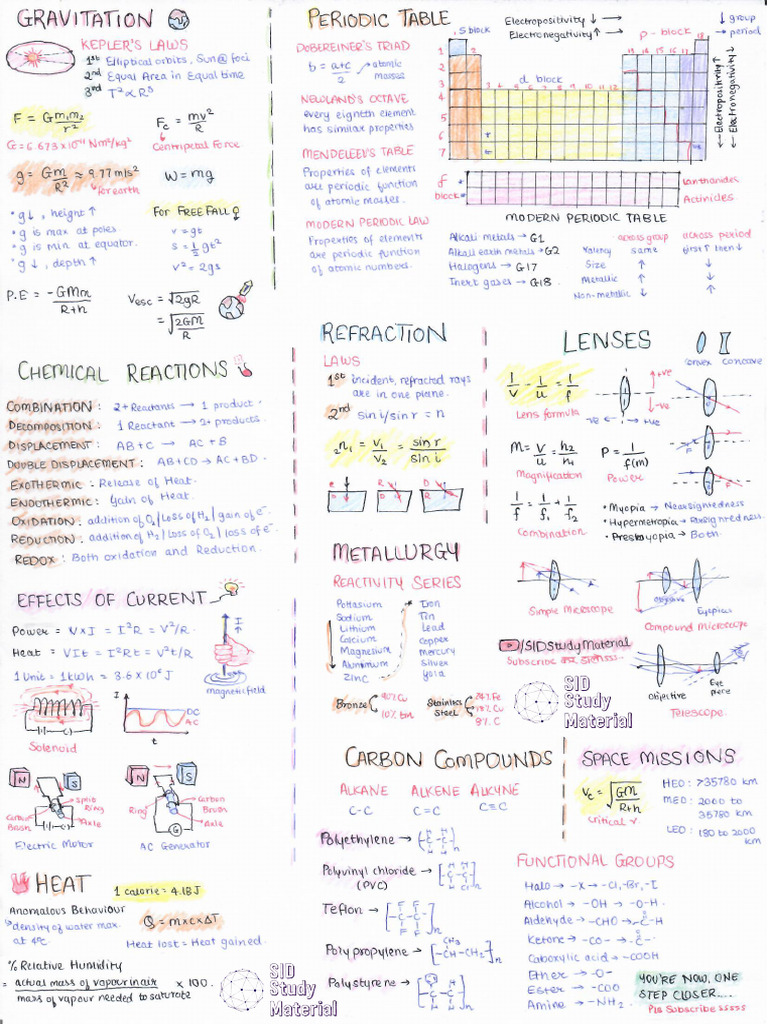 GRAVITATION
KEPLER'S LAWS
1st Elliptical orbits, Sun@ foci
2nd Equal Area in Equal time
3rd T² ∝ R³
F = Gm₁m₂/r²
G = 6.673x10⁻¹¹ Nm²/kg²
Fc = mv²/R
Centripetal Force
g = Gm/R² ≈ 9.77 m/s²
for earth
W = mg
• g↓, height ↑
• g is max at poles
• g is min at equator.
• g ↓, depth ↑
For FREE FALL
v = gt
s = 1/2 gt²
v² = 2gs
P.E = -GMm/R+h
Vesc = √2gR
= √2GM/R
PERIODIC TABLE
DOBEREINER'S TRIAD
b = a+c/2 → atomic masses
NEWLAND'S OCTAVE
every eighth element
has similar properties
MENDELEEV'S TABLE
Properties of elements
are periodic function
of atomic masses.
MODERN PERIODIC LAW
Properties of elements
are periodic function
of atomic numbers.
Electropositivity ↓ →
Electronegativity ↑ →
↓ group
→ period
s block
p - block
d block
1 2 3 4 5 6 7
3 4 5 6 7 8 9 10 11 12
13 14 15 16 17 18
← Electropositivity ↑
← Electronegativity ↓
f block
Lanthanides
Actinides
MODERN PERIODIC TABLE
Alkali metals → G1
Alkali earth metals → G2
Halogens → G17
Inert gases → G18
across group across period
Valency same first ↑ then ↓
Size ↑ ↓
Metallic ↑ ↓
Non-metallic ↓ ↑
CHEMICAL REACTIONS
COMBINATION : 2+ Reactants → 1 product
DECOMPOSITION : 1 Reactant → 2+ products.
DISPLACEMENT : AB+C → AC + B
DOUBLE DISPLACEMENT : AB+CD → AC + BD
EXOTHERMIC : Release of Heat.
ENDOTHERMIC : Gain of Heat.
OXIDATION : addition of O₂/Loss of H₂/gain of e⁻
REDUCTION : addition of H₂/Loss of O₂/loss of e⁻
REDOX : Both oxidation and Reduction.
REFRACTION
LAWS
1st incident, refracted rays
are in one plane.
2nd sin i/sin r = n
₂n₁ = v₁/v₂ = sin r/sin i
R D
D R
LENSES
Convex Concave
1/v - 1/u = 1/f
Lens formula
+ve
-ve
-ve ← → +ve
M = v/u = h₂/h₁
Magnification
P = 1/f(m)
Power
1/f = 1/f₁ + 1/f₂
Combination
F
• Myopia → Nearsightedness
• Hypermetropia → Farsightedness.
• Presbyopia → Both
Simple Microscope
Objective
Eyepiece
Compound Microscope
Objective
Eye piece
Telescope.
METALLURGY
REACTIVITY SERIES
Potassium
Sodium
Lithium
Calcium
Magnesium
Aluminum
Zinc
Iron
Tin
Lead
Copper
Mercury
Silver
Gold
Bronze
90% Cu
10% tin
Stainless Steel
74% Fe
18% Cu
8% C
/SIDStudyMaterial
SID
Study
Material
EFFECTS OF CURRENT
Power = V×I = I²R = V²/R.
Heat = VIt = I²Rt = V²t/R
1 Unit = 1kWh = 3.6 x 10⁶ J
I
magnetic field
Solenoid
I
DC
AC
t
N S
Split Ring
Carbon Brush
Axle
Electric Motor
N S
Ring
Carbon Brush
Axle
G
AC Generator
CARBON COMPOUNDS
ALKANE ALKENE ALKYNE
C-C C=C C≡C
Polyethylene →
Polyvinyl chloride →
(PVC)
Teflon →
Polypropylene →
Polystyrene →
SPACE MISSIONS
Vc = √GM/R+h
critical v
HEO : >35780 km
MEO : 2000 to
35780 km
LEO : 180 to 2000
km
FUNCTIONAL GROUPS
Halo → -X → -Cl, -Br, -I
Alcohol → -OH → -O-H
Aldehyde → -CHO → -C-H
Ketone → -CO- → -C-
Caboxylic acid → -COOH
Ether → -O-
Ester → -COO
Amine → -NH₂
YOU'RE NOW, ONE
STEP CLOSER....
Pls Subscribe sssss
HEAT
1 calorie = 4.18J
Anomalous Behaviour
density of water max.
at 4°C
Q = m×c×ΔT
Heat lost = Heat gained.
% Relative Humidity
= actual mass of vapour in air/mass of vapour needed to saturate × 100.
SID
Study
Material